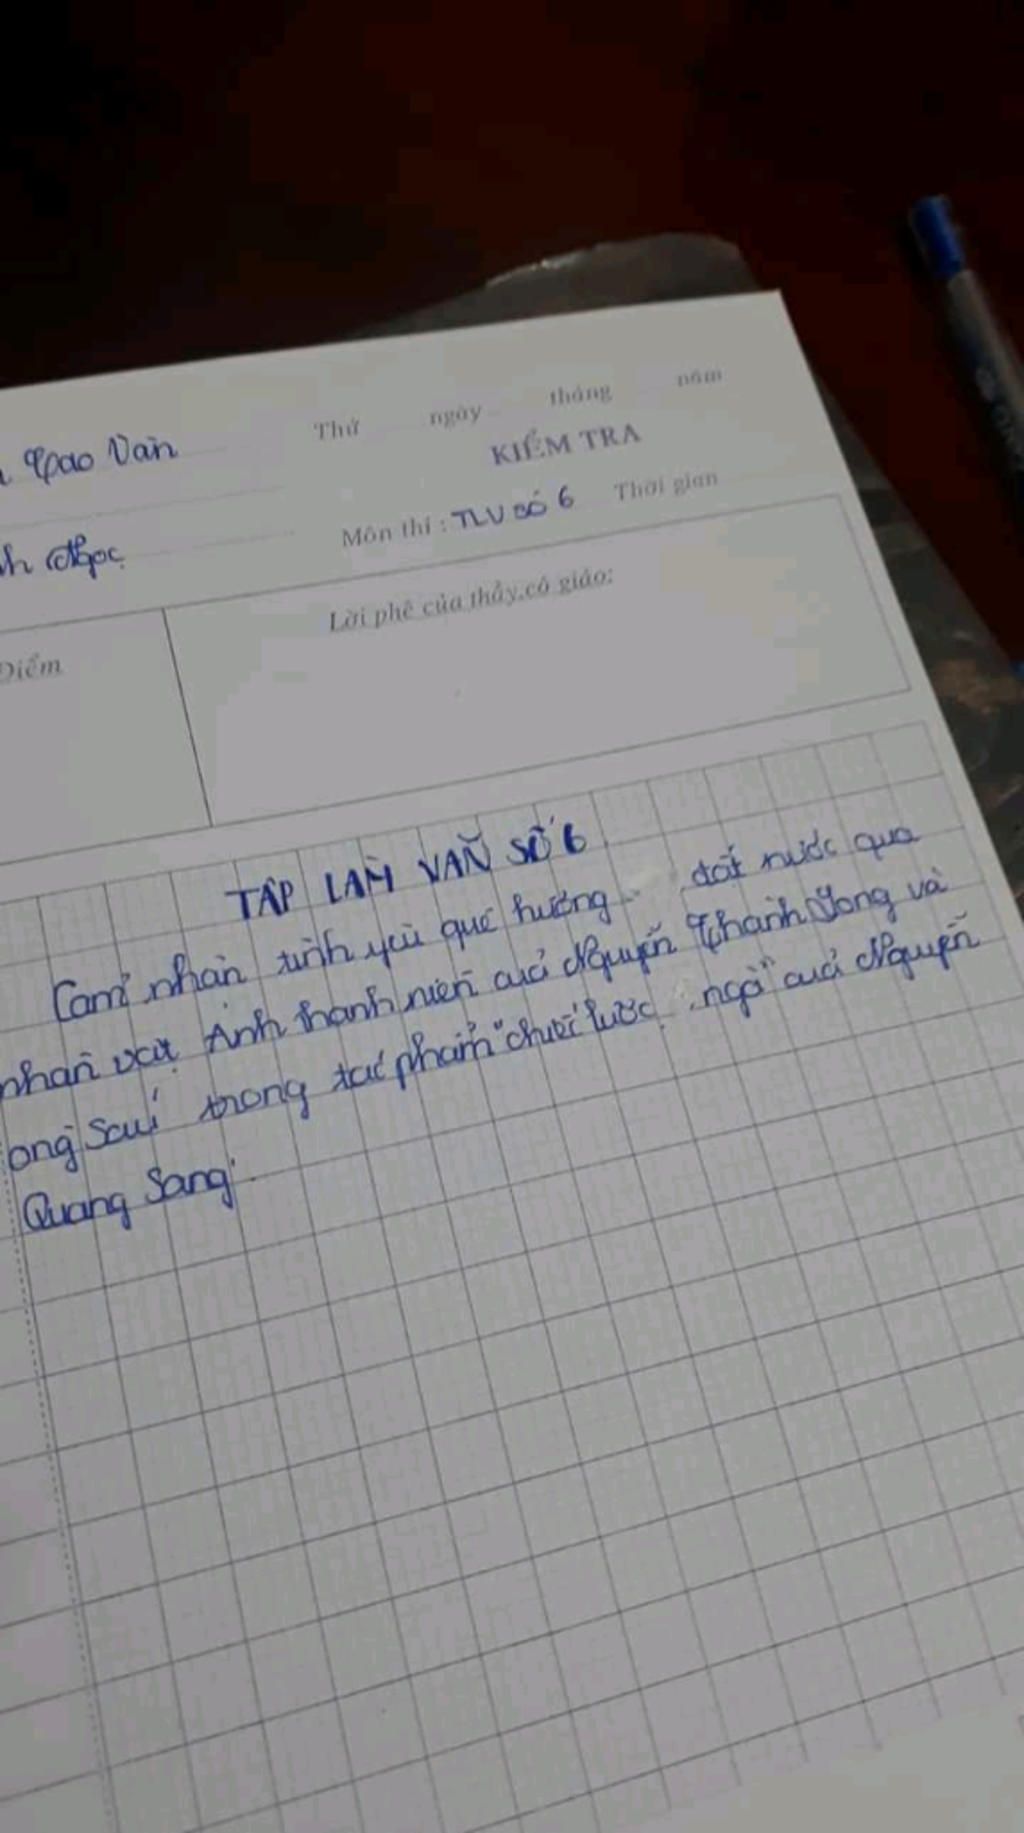 Thứ ngày tháng năm
KIỂM TRA
Cao Vân
Môn thi : TLV SỐ 6 Thời gian
nh Ngọc
Điểm
Lời phê của thầy,cô giáo:
TẬP LÀM VĂN SỐ 6
Cảm nhận tình yêu quê hương đất nước qua
nhân vật Anh thanh niên của Nguyễn Thành Long và
ông Sáu trong tác phẩm "chiếc lược ngà" của Nguyễn
Quang Sáng.